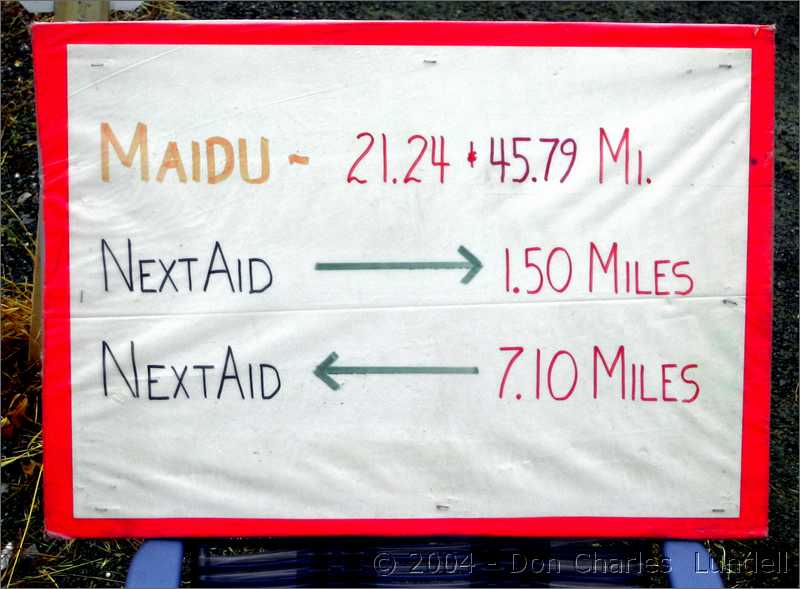 MAIDU - 21.24 & 45.79 MI.
NEXT AID → 1.50 MILES
NEXT AID ← 7.10 MILES
© 2004 - Don Charles Lundell